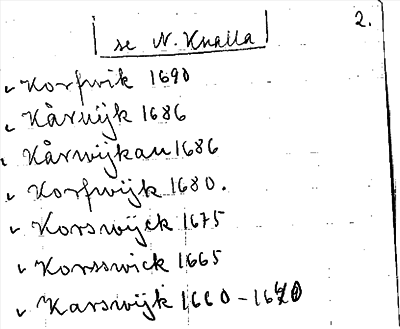 2.
se N. Knalla
Korfwik 1690
Kårwijk 1686
Kårwijkan 1686
Korfwijk 1680.
Korswijck 1675
Korsswick 1665
Karswijk 1660-